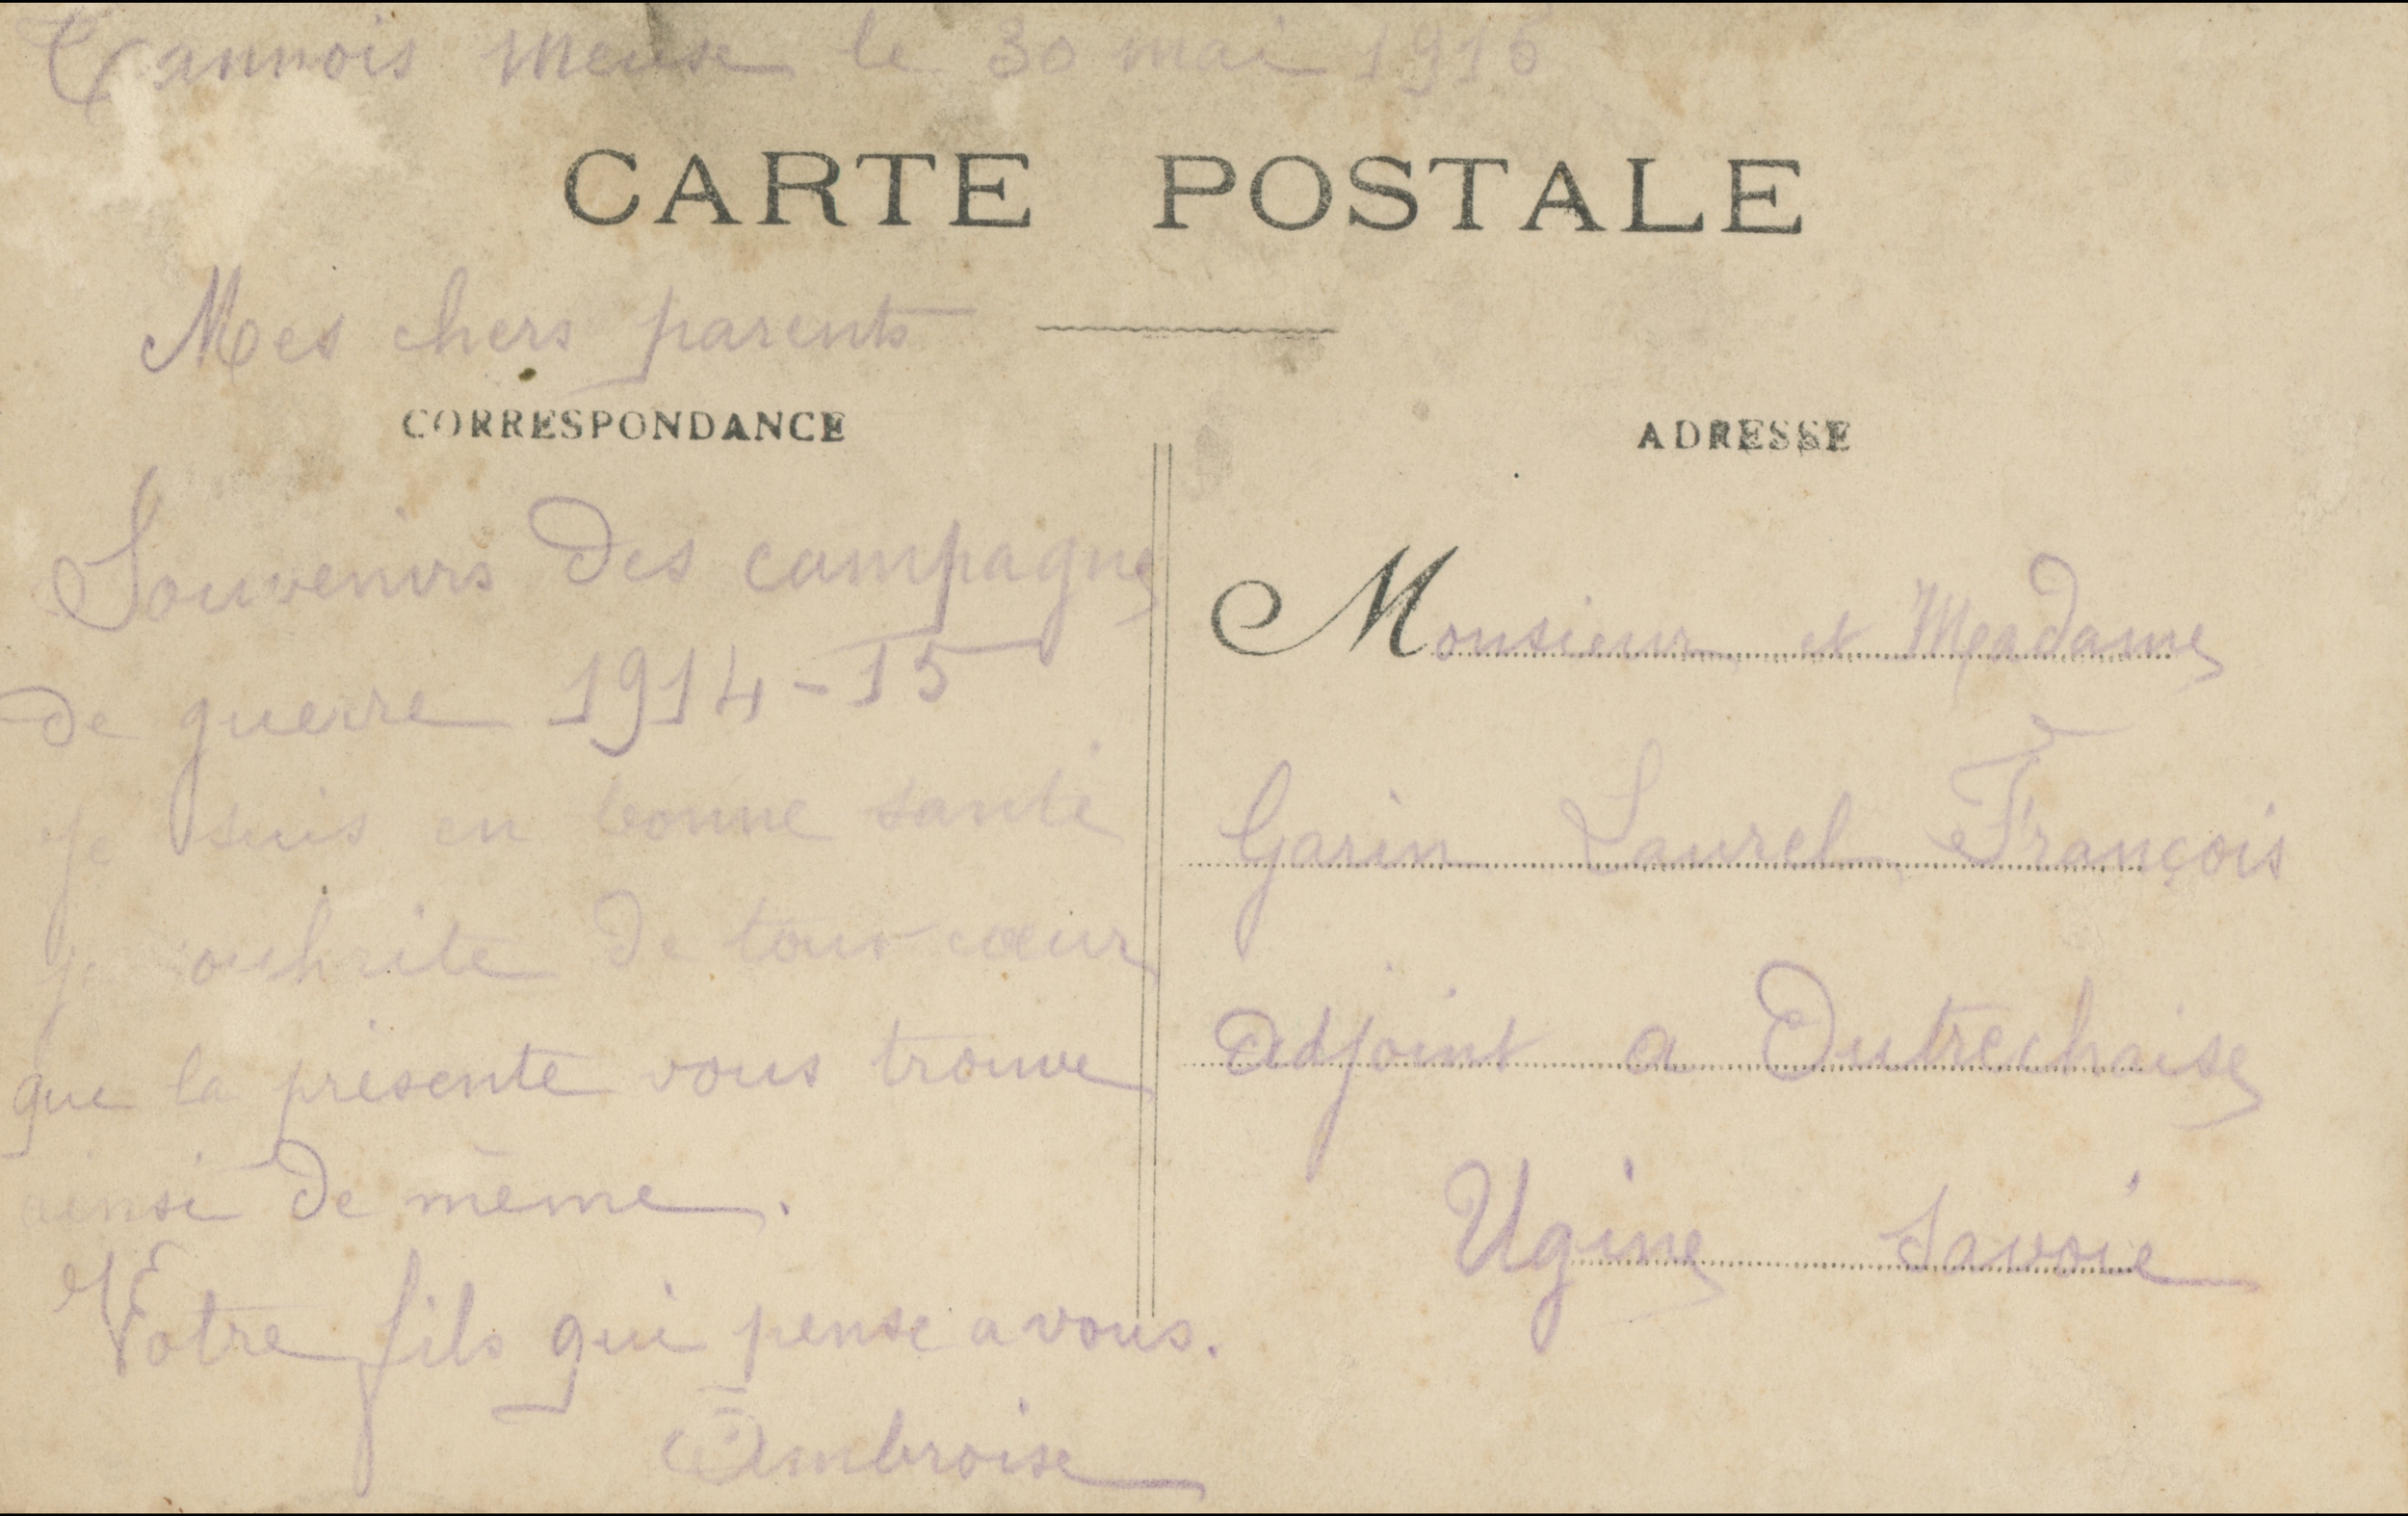 Tannois Meuse le 30 mai 1915
CARTE POSTALE
Mes chers parents
CORRESPONDANCE
Souvenirs des campagnes
de guerre 1914-15
je suis en bonne santé
je souhaite de tous cœur
que la présente vous trouve
ainsi de même.
Votre fils qui pense a vous.
Ambroise
ADRESSE
Monsieur et Meadame
Garin Laurel François
adjoint a Outrechaise
Ugine Savoie